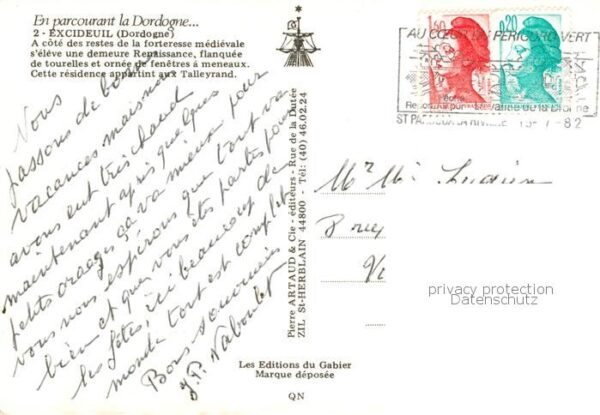 En parcourant la Dordogne...
2 - EXCIDEUIL (Dordogne)
A côté des restes de la forteresse médiévale
s'élève une demeure Renaissance, flanquée
de tourelles et ornée de fenêtres à meneaux.
Cette résidence appartint aux Talleyrand.
Vous
passons de bonnes
vacances mais nous
avons eut très chaud
maintenant après quelques
petits orages ça va mieux pour
vous nous espérons que tout va
bien et que vous êtes partés pour
les fêtes, ici beaucoup de
monde tout est complet
Bons souvenirs
J.P. Naboulet
Pierre ARTAUD & Cie - éditeurs - Rue de la Dutée
ZIL St-HERBLAIN 44800 - Tél: (40) 46.02.24
1,60
0,20
AU CŒUR DU PÉRIGORD VERT
la Dronne
ST PARDOUX LA RIVIERE
7 - 82
Mr Me Lucien
privacy protection
Datenschutz
Les Editions du Gabier
Marque déposée
QN